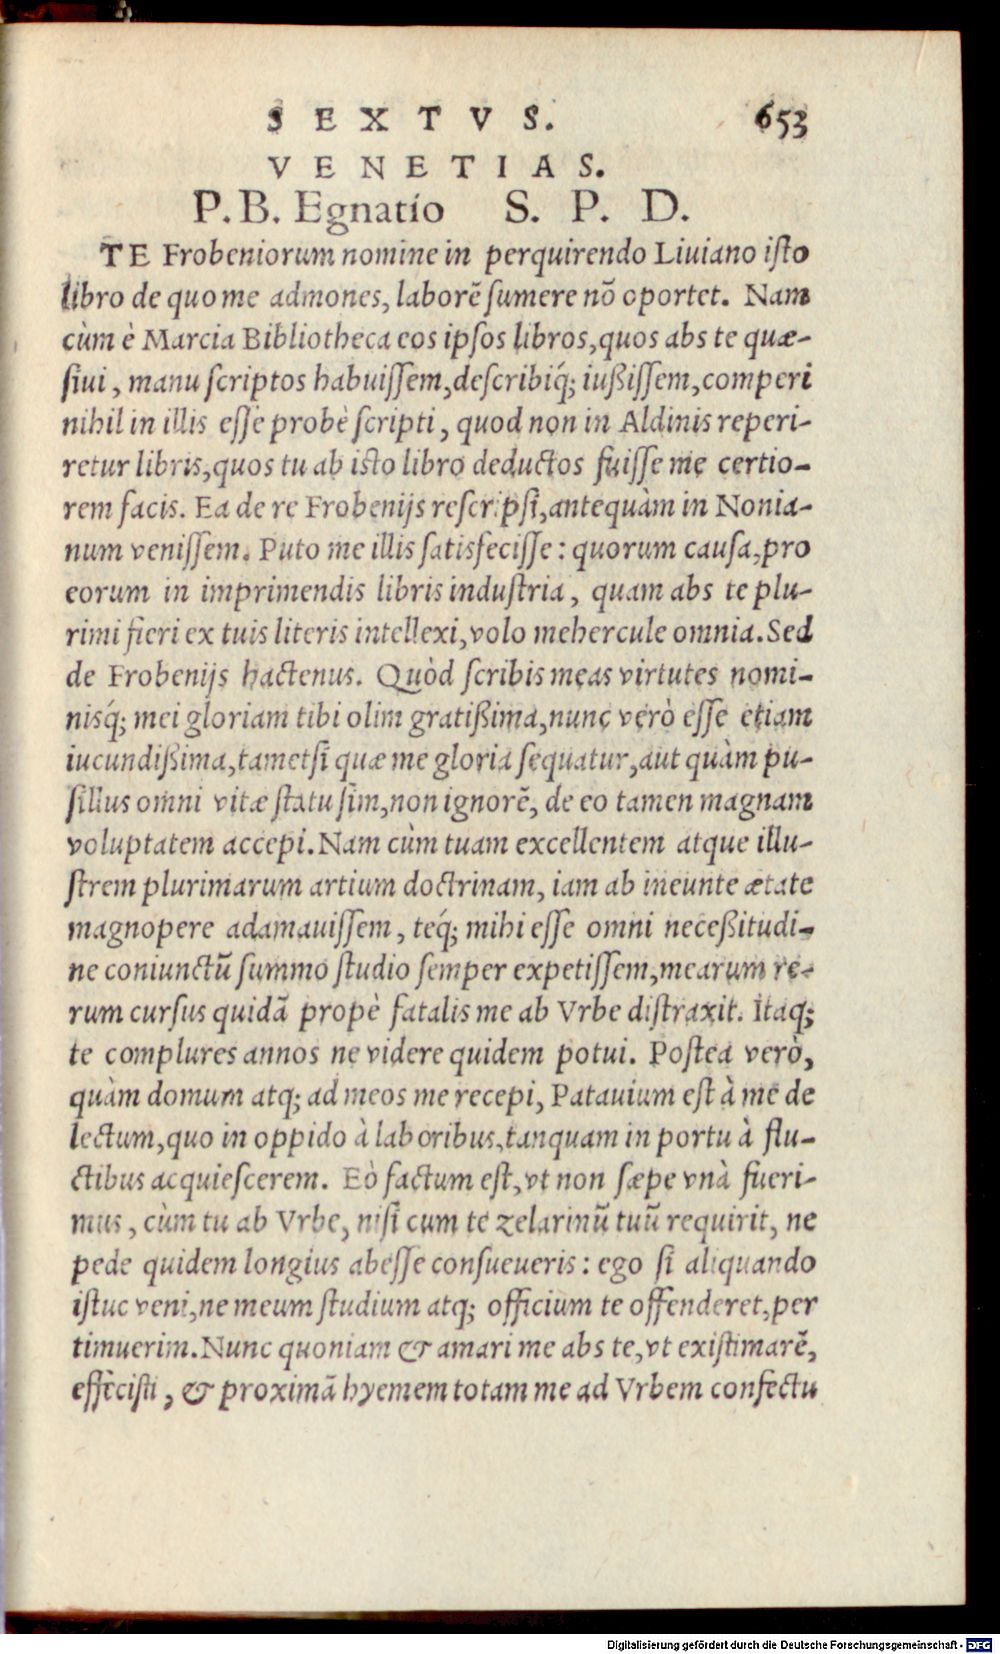 SEXTVS. 653
VENETIAS.
P. B. Egnatio S. P. D.
TE Frobeniorum nomine in perquirendo Liuiano iſto
libro de quo me admones, laborẽ ſumere nõ oportet. Nam
cùm è Marcia Bibliotheca eos ipſos libros, quos abs te quæ-
ſiui, manu ſcriptos habuiſſem, deſcribiq́; iußiſſem, comperi
nihil in illis eſſe probè ſcripti, quod non in Aldinis reperi-
retur libris, quos tu ab iſto libro deductos fuiſſe me certio-
rem facis. Ea de re Frobenijs reſcripſi, antequàm in Nonia-
num veniſſem. Puto me illis ſatisfeciſſe: quorum cauſa, pro
eorum in imprimendis libris induſtria, quam abs te plu-
rimi fieri ex tuis literis intellexi, volo mehercule omnia. Sed
de Frobenijs hactenus. Quòd ſcribis meas virtutes nomi-
nisq́; mei gloriam tibi olim gratißima, nunc verò eſſe etiam
iucundißima, tametſi quæ me gloria ſequatur, aut quàm pu-
ſillus omni vitæ ſtatu ſim, non ignorẽ, de eo tamen magnam
voluptatem accepi. Nam cùm tuam excellentem atque illu-
ſtrem plurimarum artium doctrinam, iam ab ineunte ætate
magnopere adamauiſſem, teq́; mihi eſſe omni neceßitudi-
ne coniunctũ ſummo ſtudio ſemper expetiſſem, mearum re-
rum curſus quidã propè fatalis me ab Vrbe diſtraxit. Itaq;
te complures annos ne videre quidem potui. Poſtea verò,
quàm domum atq; ad meos me recepi, Patauium eſt à me de
lectum, quo in oppido à laboribus, tanquam in portu à flu-
ctibus acquieſcerem. Eò factum eſt, vt non ſæpe vnà fueri-
mus, cùm tu ab Vrbe, niſi cum te zelarinũ tuũ requirit, ne
pede quidem longius abeſſe conſueueris: ego ſi aliquando
iſtuc veni, ne meum ſtudium atq; officium te offenderet, per
timuerim. Nunc quoniam & amari me abs te, vt exiſtimarẽ,
effeciſti, & proximã hyemem totam me ad Vrbem confectu
Digitalisierung gefördert durch die Deutsche Forschungsgemeinschaft - DFG